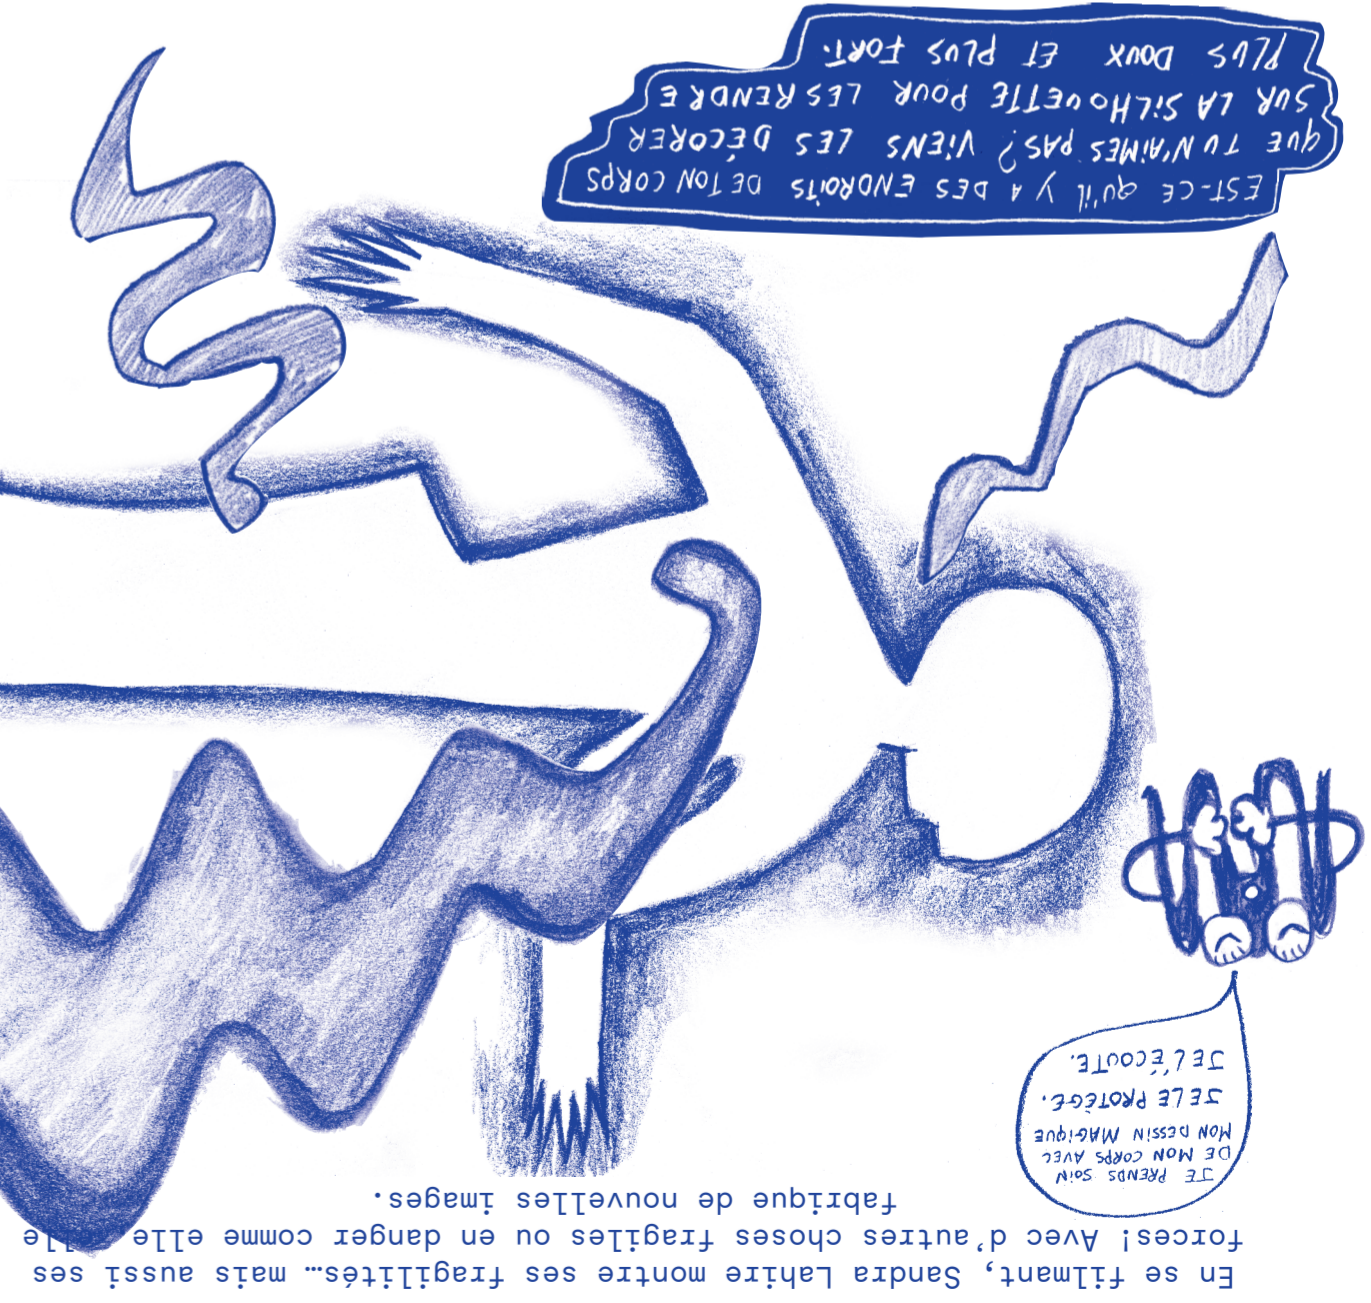 En se filmant, Sandra Lahire montre ses fragilités… mais aussi ses
forces! Avec d'autres choses fragiles ou en danger comme elle elle
fabrique de nouvelles images.
JE PRENDS SOIN
DE MON CORPS AVEC
MON DESSIN MAGIQUE
JE LE PROTÈGE.
JE L'ÉCOUTE.
EST-CE QU'IL Y A DES ENDROITS DE TON CORPS
QUE TU N'AIMES PAS? VIENS LES DÉCORER
SUR LA SILHOUETTE POUR LES RENDRE
PLUS DOUX ET PLUS FORT.